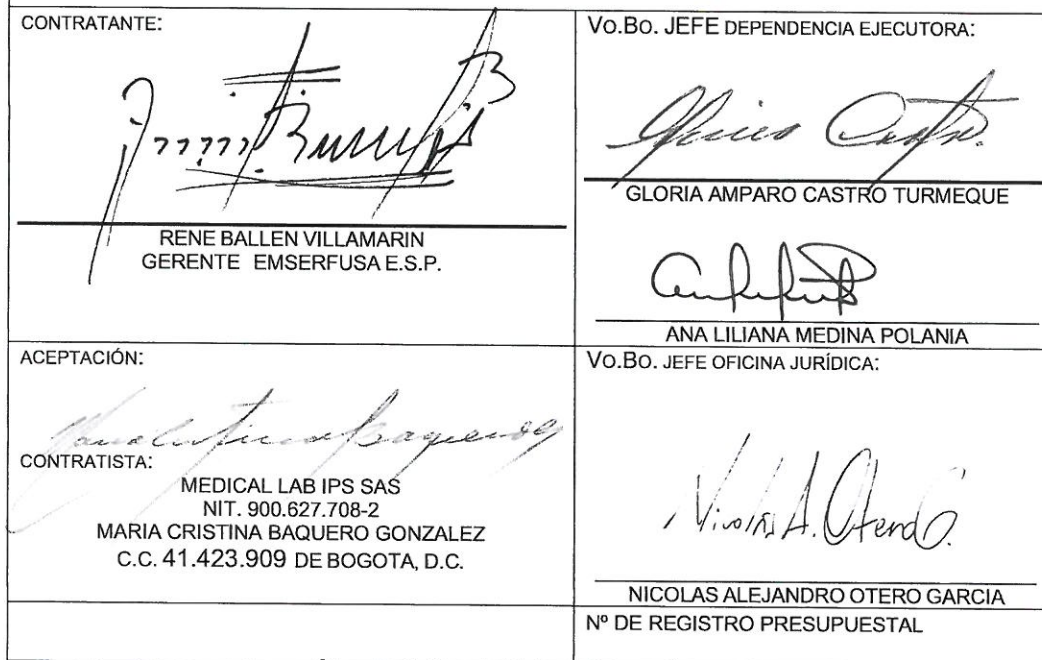 CONTRATANTE:
RENE BALLEN VILLAMARIN
GERENTE EMSERFUSA E.S.P.
Vo.Bo. JEFE DEPENDENCIA EJECUTORA:
GLORIA AMPARO CASTRO TURMEQUE
ANA LILIANA MEDINA POLANIA
ACEPTACIÓN:
CONTRATISTA:
MEDICAL LAB IPS SAS
NIT. 900.627.708-2
MARIA CRISTINA BAQUERO GONZALEZ
C.C. 41.423.909 DE BOGOTA, D.C.
Vo.Bo. JEFE OFICINA JURÍDICA:
Nicolás A. Otero G.
NICOLAS ALEJANDRO OTERO GARCIA
Nº DE REGISTRO PRESUPUESTAL